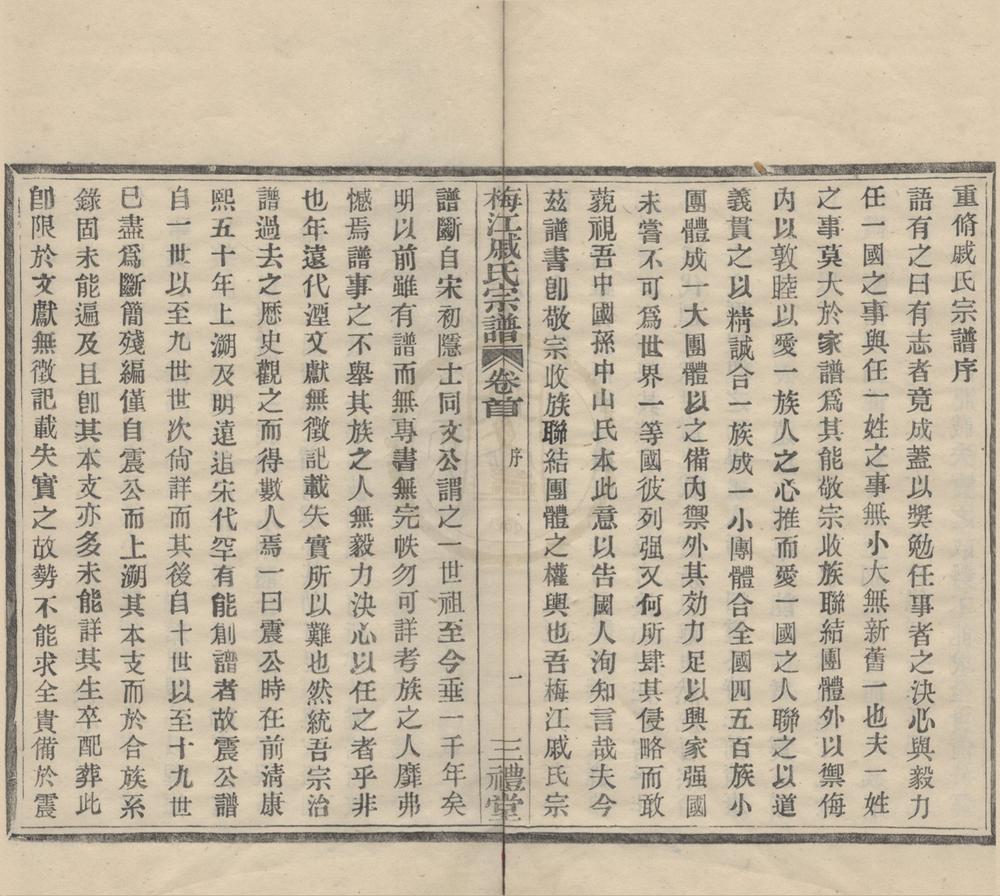 重脩戚氏宗譜序
語有之曰有志者竟成蓋以獎勉任事者之決心與毅力
任一國之事與任一姓之事無小大無新舊一也夫一姓
之事莫大於家譜爲其能敬宗收族聯結團體外以禦侮
內以敦睦以愛一族人之心推而愛一國之人聯之以道
義貫之以精誠合一族成一小團體合全國四五百族小
團體成一大團體以之備內禦外其効力足以興家强國
未嘗不可爲世界一等國彼列强又何所肆其侵略而敢
藐視吾中國孫中山氏本此意以告國人洵知言哉夫今
茲譜書卽敬宗收族聯結團體之權輿也吾梅江戚氏宗
梅江戚氏宗譜 卷首 序 一 三禮堂
譜斷自宋初隱士同文公謂之一世祖至今垂一千年矣
明以前雖有譜而無專書無完帙勿可詳考族之人靡弗
憾焉譜事之不舉其族之人無毅力決心以任之者乎非
也年遠代湮文獻無徵記載失實所以難也然統吾宗治
譜過去之歷史觀之而得數人焉一曰震公時在前淸康
熙五十年上溯及明遠追宋代罕有能創譜者故震公譜
自一世以至九世世次尙詳而其後自十世以至十九世
已盡爲斷簡殘編僅自震公而上溯其本支而於合族系
錄固未能遍及且卽其本支亦多未能詳其生卒配葬此
卽限於文獻無徵記載失實之故勢不能求全責備於震